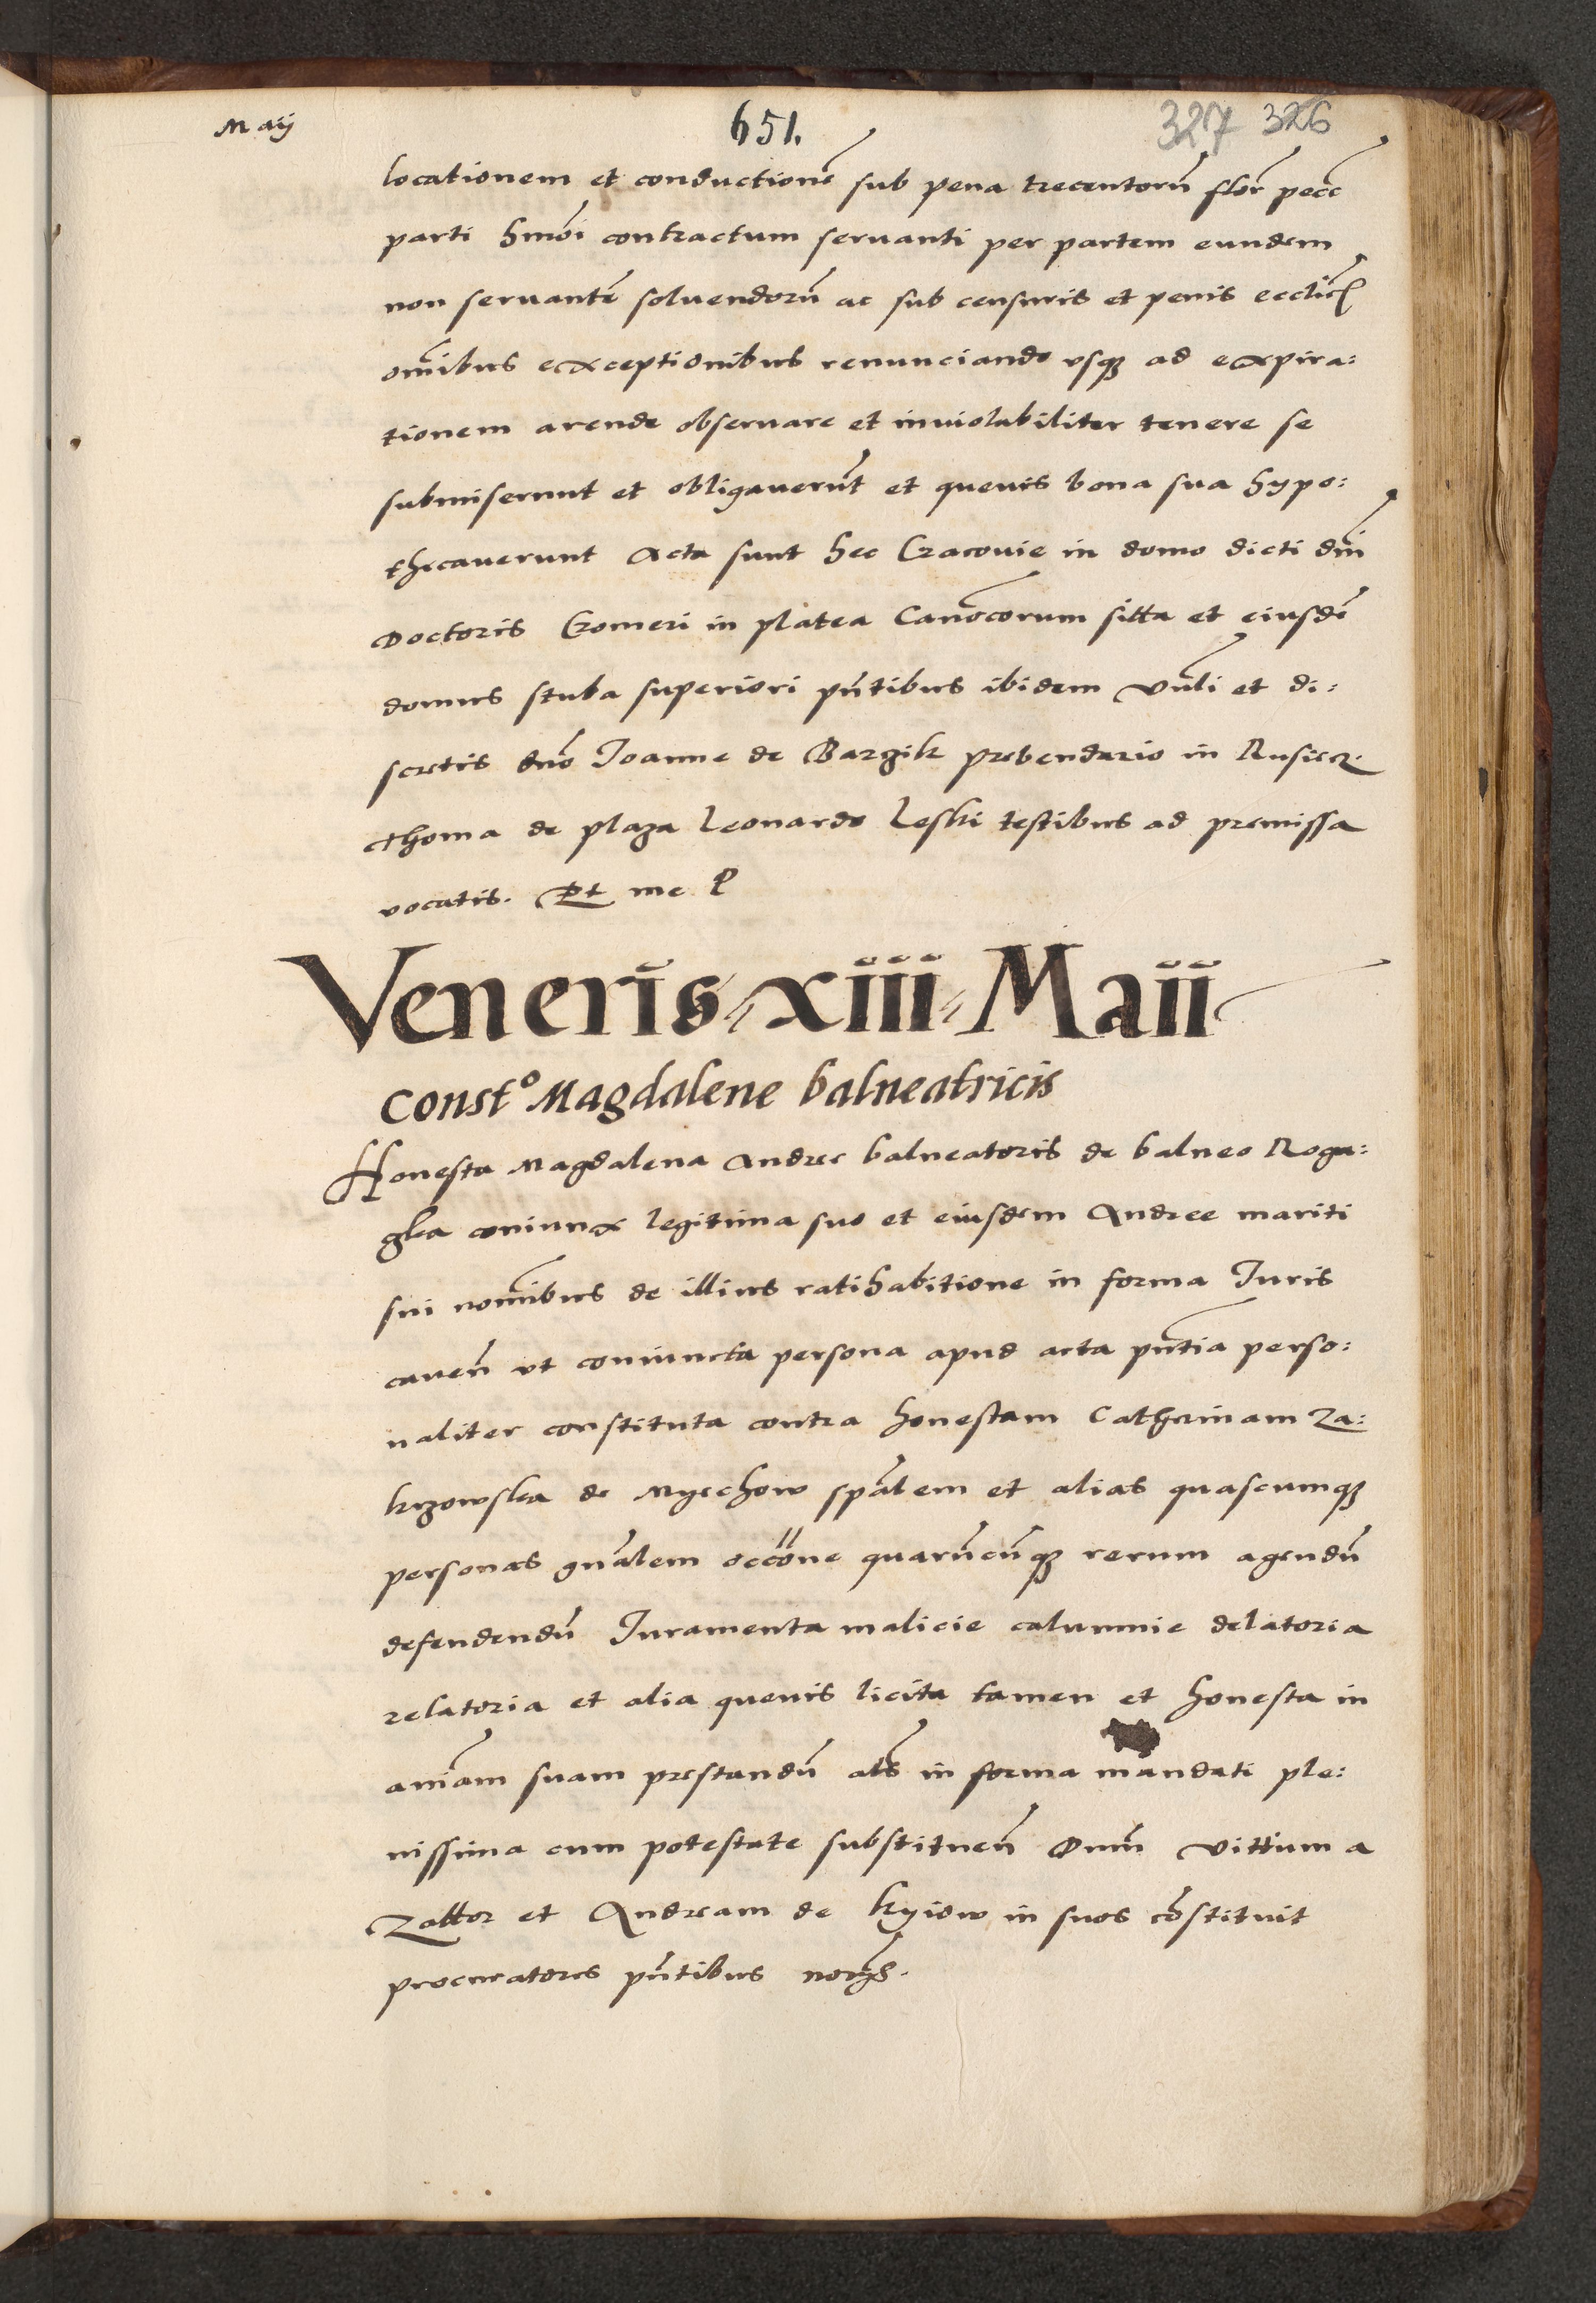 Maij
651.
327 326
locationem et conductionē sub pena trecentorū flor̄ pecc̄
parti hmōi contractum seruanti per partem eundem
non seruantē soluendorū ac sub censuris et penis eccl̄ic̄
om̄ibus exceptionibus renunciando vsqȝ ad expira:
tionem arende obseruare et inuiolabiliter tenere se
submiserunt et obligauerūt et queuis bona sua hypo:
thecauerunt Acta sunt hec Cracouie in domo dicti dn̄i
Doctoris Cromeri in platea Canōcorum sitta et eiusdē
domus stuba superiori pn̄tibus ibidem vn̄li et di:
scretis dn̄o Joanne de Bargik prebendario in
Thoma de plaza Leonardo Leski testibus ad premissa
vocatis. Et me P
Veneris xiii Maii
Constᵒ Magdalene balneatricis
Honesta Magdalena Andree balneatoris de balneo Roga:
coniunx legitima suo et eiusdem Andree mariti
sui nom̄ibus de illius ratihabitione in forma Juris
cauen̄ vt coniuncta persona apud acta pn̄tia perso:
naliter constituta contra honestam Catherinam Za:
krzowska de Myechow spāLem et alias quascumqȝ
personas gn̄alem occōne quarūcūqȝ rerum agendū
defendendū Juramenta malicie calumnie delatoria
relatoria et alia queuis licita tamen et honesta in
aniām suam prestandū als̄ in forma mandati ple:
nissima cum potestate substituen̄ Dnm̄ vittum a
Zattor et Andream de Kyiow in suos cōstituit
procuratores pn̄tibus